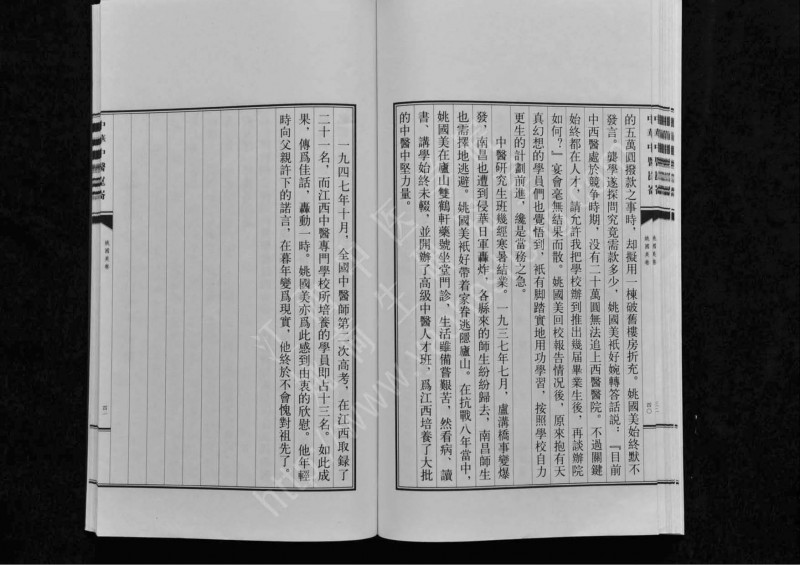 的五萬圓撥款之事時，却擬用一棟破舊樓房折充。姚國美始終默不
發言，龔學遂探問究竟需款多少，姚國美祇好婉轉答話説：『目前
中西醫處於競爭時期，没有二十萬圓無法追上西醫醫院。不過關鍵
始終都在人才，請允許我把學校辦到推出幾届畢業生後，再談辦院
如何？』宴會毫無結果而散。姚國美回校報告情况後，原來抱有天
真幻想的學員們也覺悟到，祇有脚踏實地用功學習，按照學校自力
更生的計劃前進，纔是當務之急。
中醫研究生班幾經寒暑結業。一九三七年七月，盧溝橋事變爆
發，南昌也遭到侵華日軍轟炸，各縣來的師生紛紛歸去，南昌師生
也需擇地逃避。姚國美祇好帶着家眷逃隱廬山。在抗戰八年當中，
姚國美在廬山雙鶴軒藥號坐堂門診，生活雖備嘗艱苦，然看病、讀
書、講學始終未輟，並開辦了高級中醫人才班，爲江西培養了大批
的中醫中堅力量。
姚國美卷
四〇
一九四七年十月，全國中醫師第二次高考，在江西取録了
二十一名，而江西中醫專門學校所培養的學員即占十三名。如此成
果，傳爲佳話，轟動一時。姚國美亦爲此感到由衷的欣慰。他年輕
時向父親許下的諾言，在暮年變爲現實，他終於不會愧對祖先了。
姚國美卷
四一